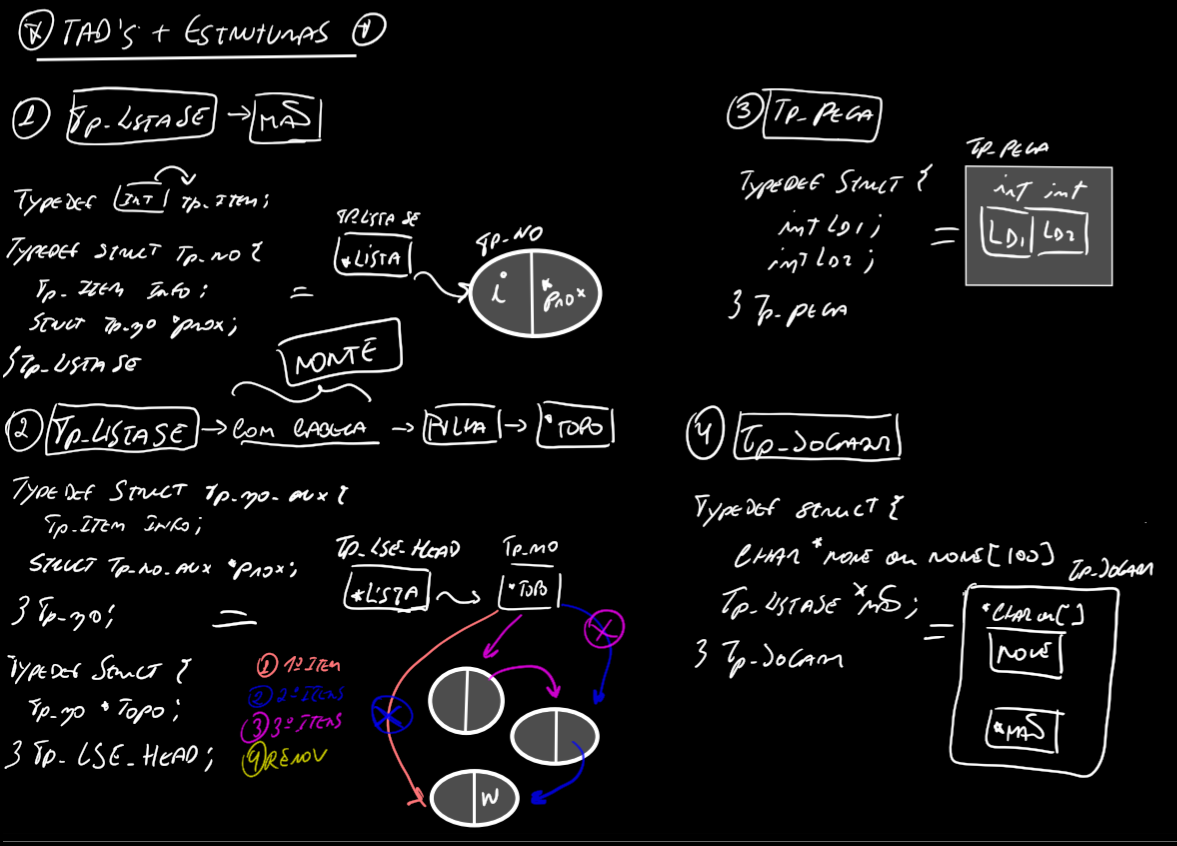 * TAD'S + ESTRUTURAS
1 Tp_LISTASE → MAO
TYPEDEF INT Tp_ITEM;
TYPEDEF STRUCT Tp_NO {
Tp_ITEM INFO;
STRUCT Tp_NO *PROX;
} Tp_LISTASE
=
TP LISTA SE
*LISTA
Tp_NO
i
*PROX
MONTE
2 Tp_LISTASE → COM CABECA → PULHA → *TOPO
TYPEDEF STRUCT Tp_NO_AUX {
Tp_ITEM INFO;
STRUCT Tp_NO_AUX *PROX;
} Tp_NO;
=
TYPEDEF STRUCT {
Tp_NO *TOPO;
} Tp_LSE_HEAD;
Tp_LSE_HEAD
*LISTA
Tp_NO
*TOPO
1 1º ITEM
2 2º ITENS
3 3º ITENS
4 REMOV
N
3 Tp_PECA
TYPEDEF STRUCT {
int LD1;
int LD2;
} Tp_PECA
=
Tp_PECA
int int
LD1 LD2
4 Tp_JOGADOR
TYPEDEF STRUCT {
CHAR *NOME OU NOME[100]
Tp_LISTASE *MAO;
} Tp_JOGADOR
=
Tp_JOGADOR
*CHAR OU []
NOME
*MAO